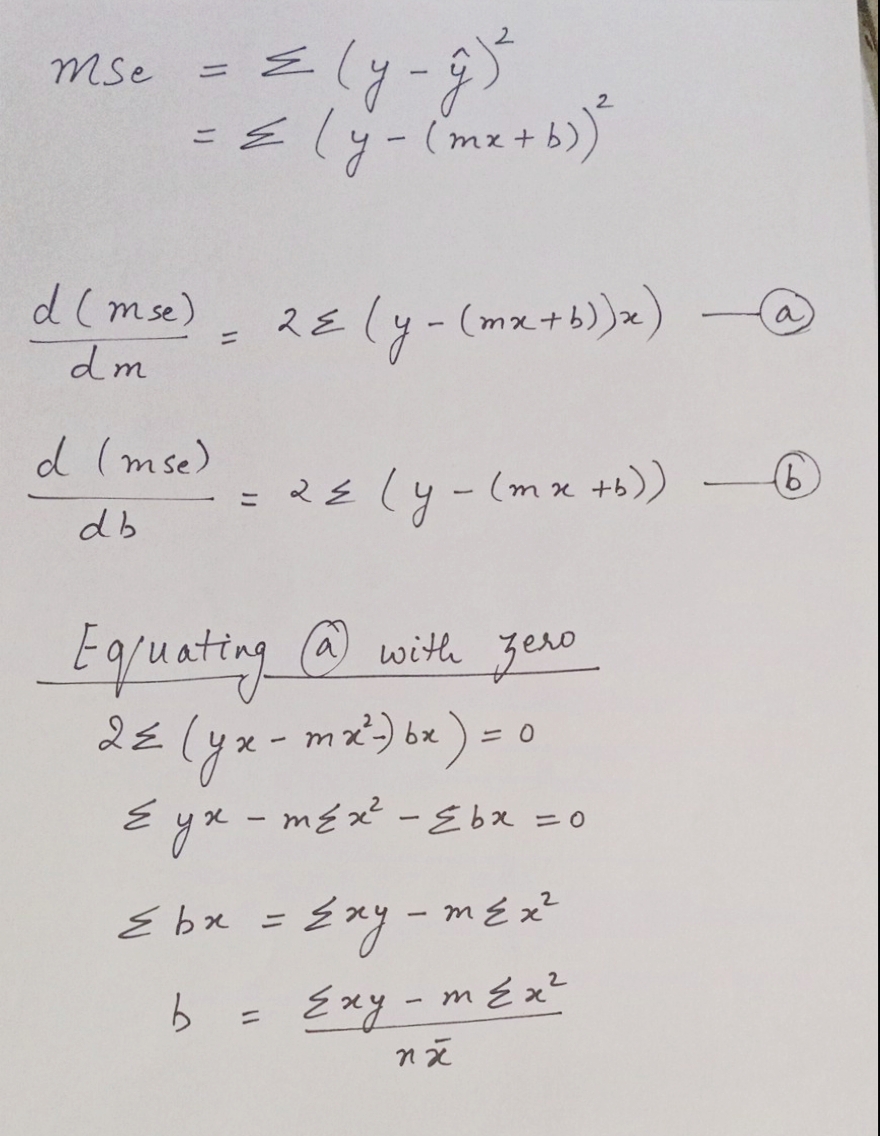 mse = Σ (y - ŷ)²
= Σ (y - (mx + b))²
d(mse)/dm = 2Σ (y - (mx + b))x) — ⓐ
d(mse)/db = 2Σ (y - (mx + b)) — ⓑ
Equating ⓐ with zero
2Σ (yx - mx² -) bx) = 0
Σ yx - mΣx² - Σbx = 0
Σ bx = Σxy - mΣx²
b = (Σxy - mΣx²)/(n x̄)